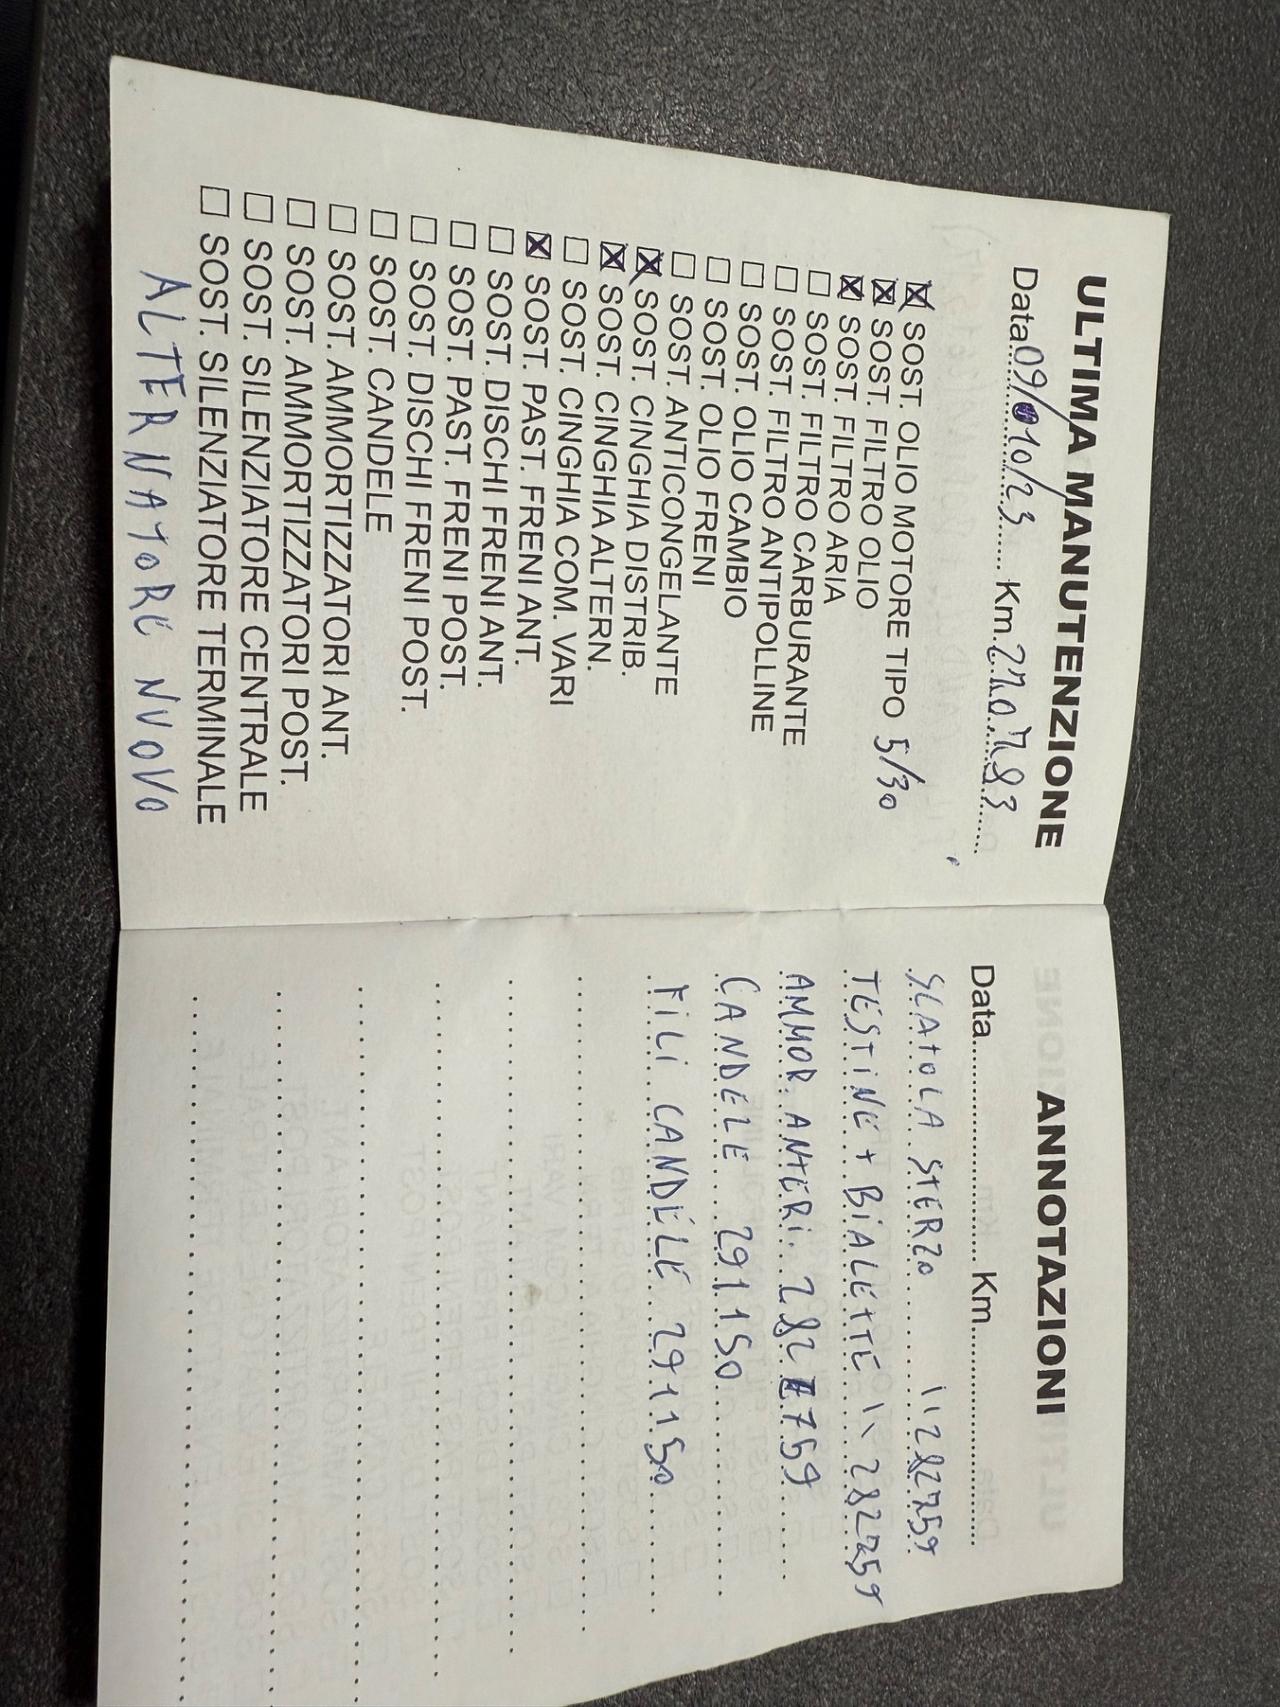 ULTIMA MANUTENZIONE
Data 09/10/23 Km. 270.783
☒ SOST. OLIO MOTORE TIPO 5/30
☒ SOST. FILTRO OLIO
☒ SOST. FILTRO ARIA
☐ SOST. FILTRO CARBURANTE
☐ SOST. FILTRO ANTIPOLLINE
☐ SOST. OLIO CAMBIO
☐ SOST. OLIO FRENI
☐ SOST. ANTICONGELANTE
☒ SOST. CINGHIA DISTRIB.
☒ SOST. CINGHIA ALTERN.
☐ SOST. CINGHIA COM. VARI
☒ SOST. PAST. FRENI ANT.
☐ SOST. DISCHI FRENI ANT.
☐ SOST. PAST. FRENI POST.
☐ SOST. DISCHI FRENI POST.
☐ SOST. CANDELE
☐ SOST. AMMORTIZZATORI ANT.
☐ SOST. AMMORTIZZATORI POST.
☐ SOST. SILENZIATORE CENTRALE
☐ SOST. SILENZIATORE TERMINALE
ALTERNATORE NUOVO
ANNOTAZIONI
Data Km
SCATOLA STERZO \\ 282759
TESTINE + BIALETTE \\ 282759
AMMOR. ANTERI. 282759
CANDELE 291150
FILI CANDELE 291150